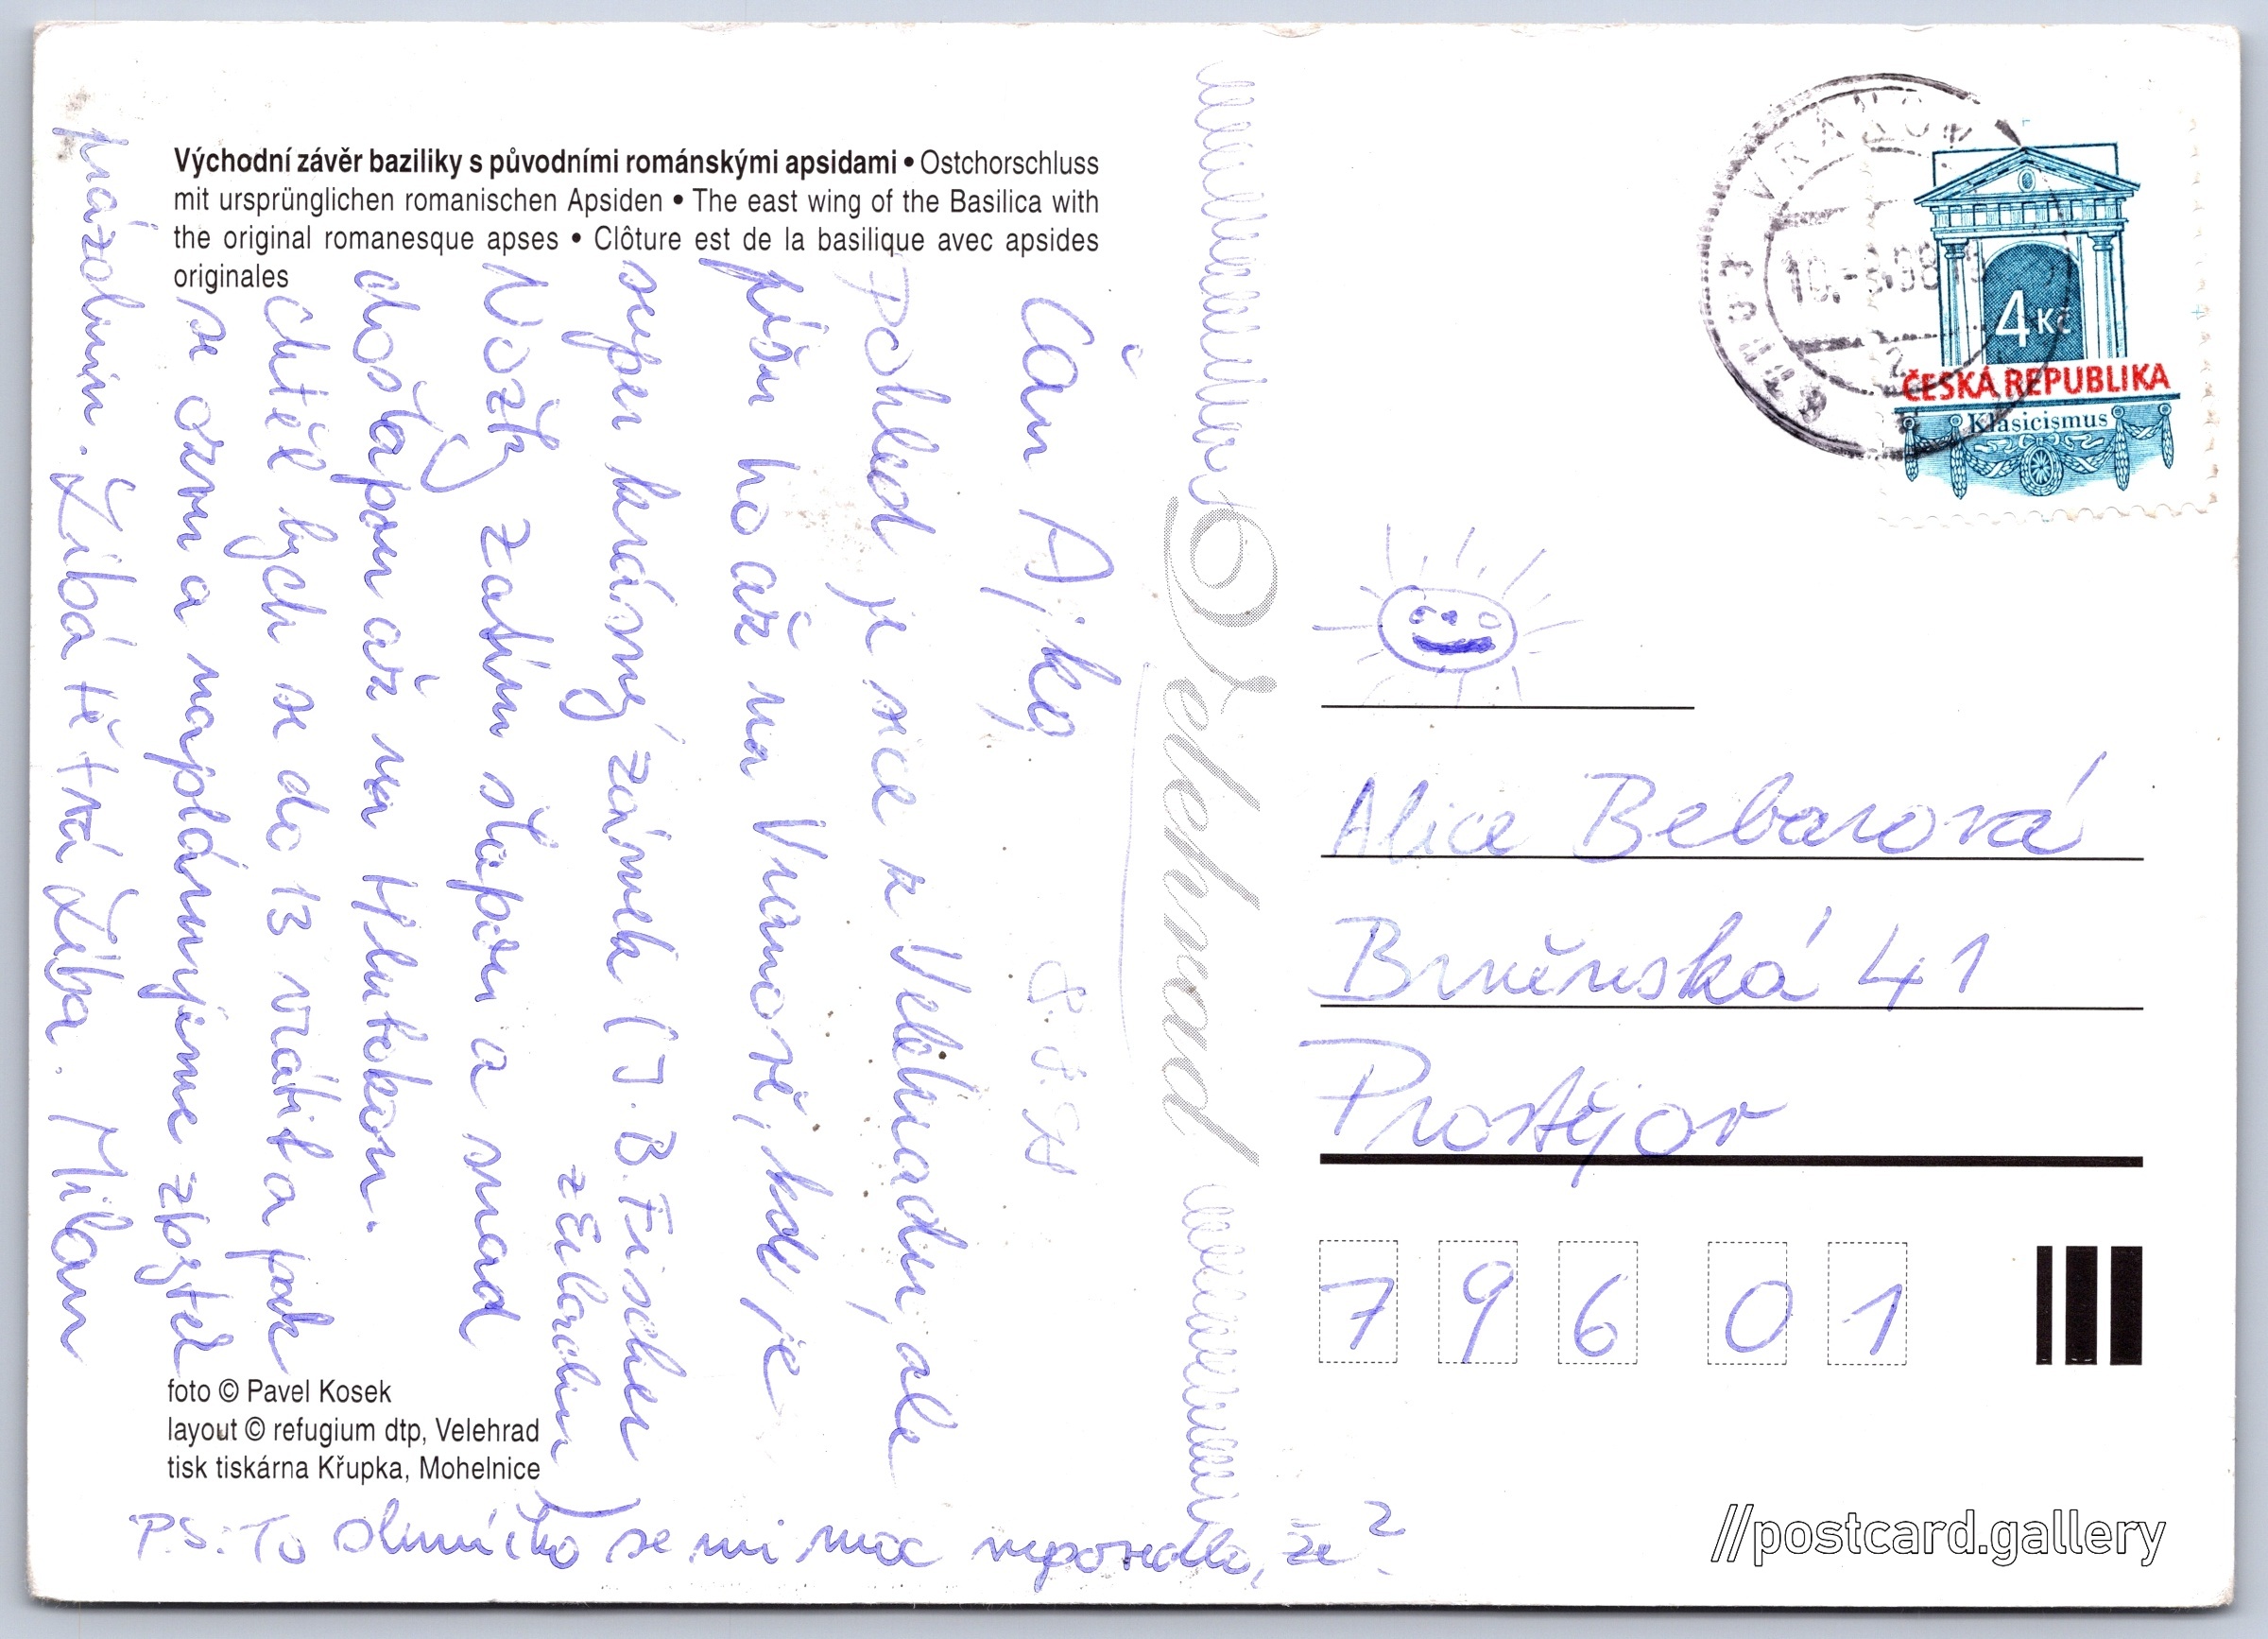 Východní závěr baziliky s původními románskými apsidami • Ostchorschluss
mit ursprünglichen romanischen Apsiden • The east wing of the Basilica with
the original romanesque apses • Clôture est de la basilique avec apsides
originales
Čau Ajko, 8. 8. 98
Pohled je sice z Velehradu, ale
píšu ho až na Vranově, kde je
super krásný zámek (J. B. Fischer
z Erlachu)
Nožky zatím šlapou a snad
došlapou až na Hlubokou.
Chtěl bych se do 13 vrátit a pak
se ozvu a naplánujeme zbytek
prázdnin. Líbá tě tvá Žába. Milan
P.S.: To sluníčko se mi moc nepovedlo, že?
Velehrad
VRANOV
10.-8.98
2
4 Kč
ČESKÁ REPUBLIKA
Klasicismus
Alice Bebarová
Brněnská 41
Prostějov
796 01
foto © Pavel Kosek
layout © refugium dtp, Velehrad
tisk tiskárna Křupka, Mohelnice
//postcard.gallery